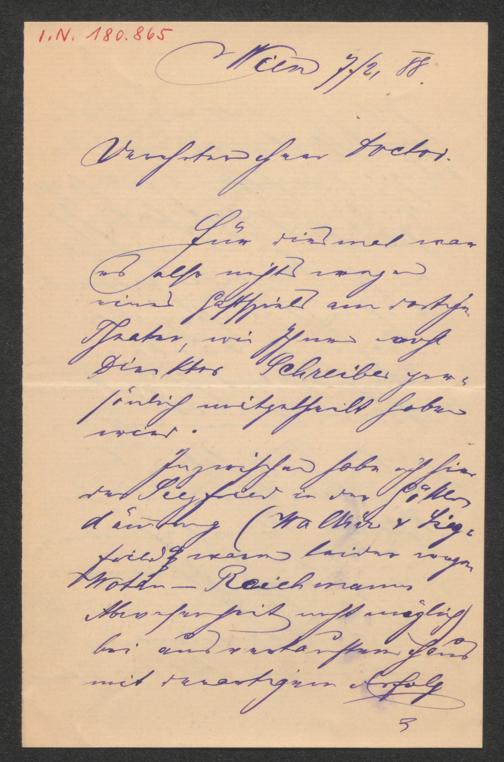 I.N. 180.865
Wien 7/2, 88.
Verehrter Herr Doctor.
Für diesmal war
es also nichts wegen
eines Gastspiels am dortigen
Theater, wie Ihnen wohl
Direktor Schreiber per-
sönlich mitgetheilt haben
wird.
Inzwischen habe ich hier
den Siegfried in der Götter
dämrung (Walküre & Sieg-
fried waren leider wegen
Wotan – Reichmanns
Abwesenheit nicht möglich)
bei ausverkauftem Haus
mit derartigem Erfolg